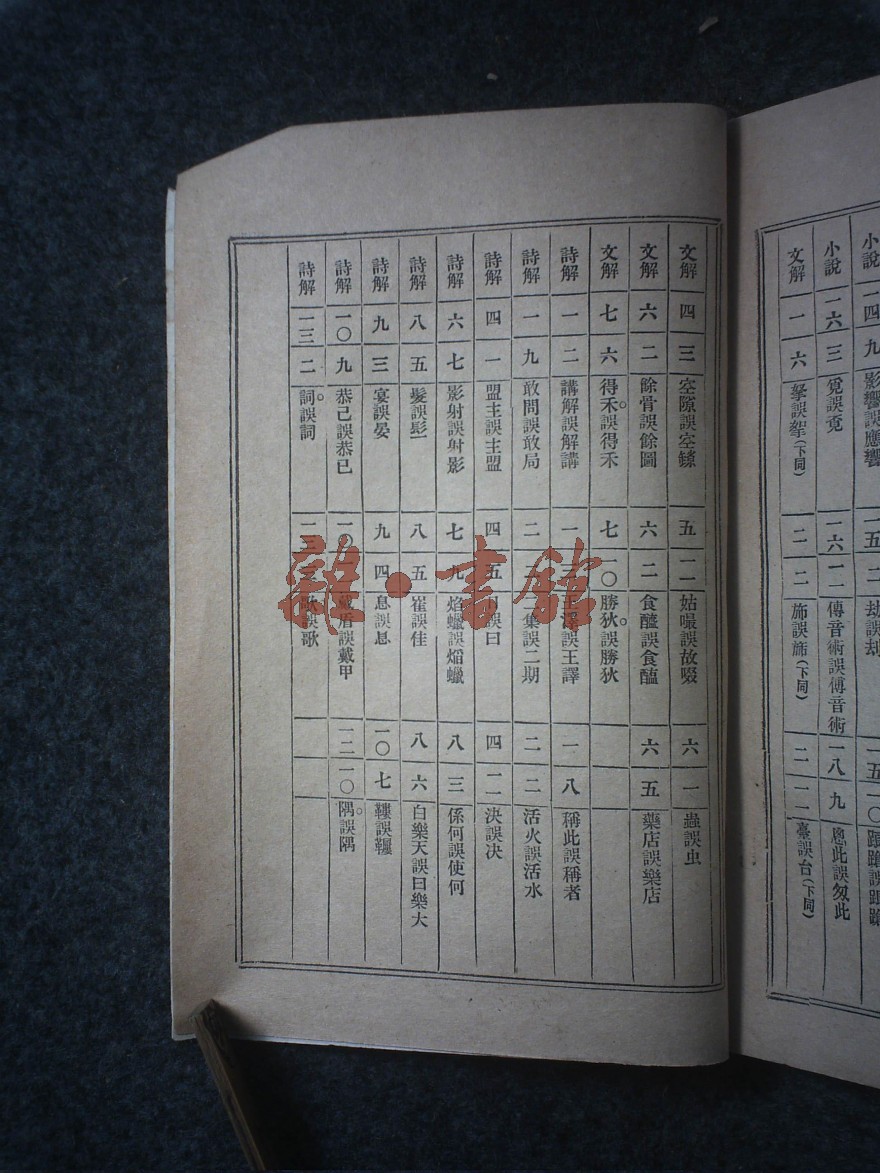 小說 一四 九 影響誤應響 一五 二 劫誤刼 一五 一〇
小說 一六 三 覓誤竟 一六 一一 傳音術誤傅音術 一八 九 悤此誤匆此
文解 一 六 拏誤挐(下同) 二 二 (下同) 二 一一 臺誤台(下同)
文解 四 三 空隙誤空 五 一一 姑嘬誤故啜 六 一 蟲誤虫
文解 六 二 餘骨誤餘圖 六 二 食醯誤食醢 六 五 藥店誤樂店
文解 七 六 得禾。誤得禾 七 一〇 勝狄。誤勝狄
詩解 一 二 講解誤解講 一 三 王澤誤王譯 一 八 稱此誤稱者
詩解 一 九 敢問誤敢局 二 一 二集誤二期 二 二 活火誤活水
詩解 四 一 盟主誤主盟 四 五 誤曰 四 一一 決誤决
詩解 六 七 影射誤射影 七 九 焰蠟誤熖蠟 八 三 係何誤使何
詩解 八 五 髮誤髟 八 五 崔誤佳 八 六 白樂天誤曰樂大
詩解 九 三 宴誤晏 九 四 息誤 一〇 七
詩解 一〇 九 恭己誤恭已 一〇 戴盾誤戴甲 一二 一〇 隅。誤隅
詩解 一三 二 詞。誤詞 一三 誤歌
龍·書館